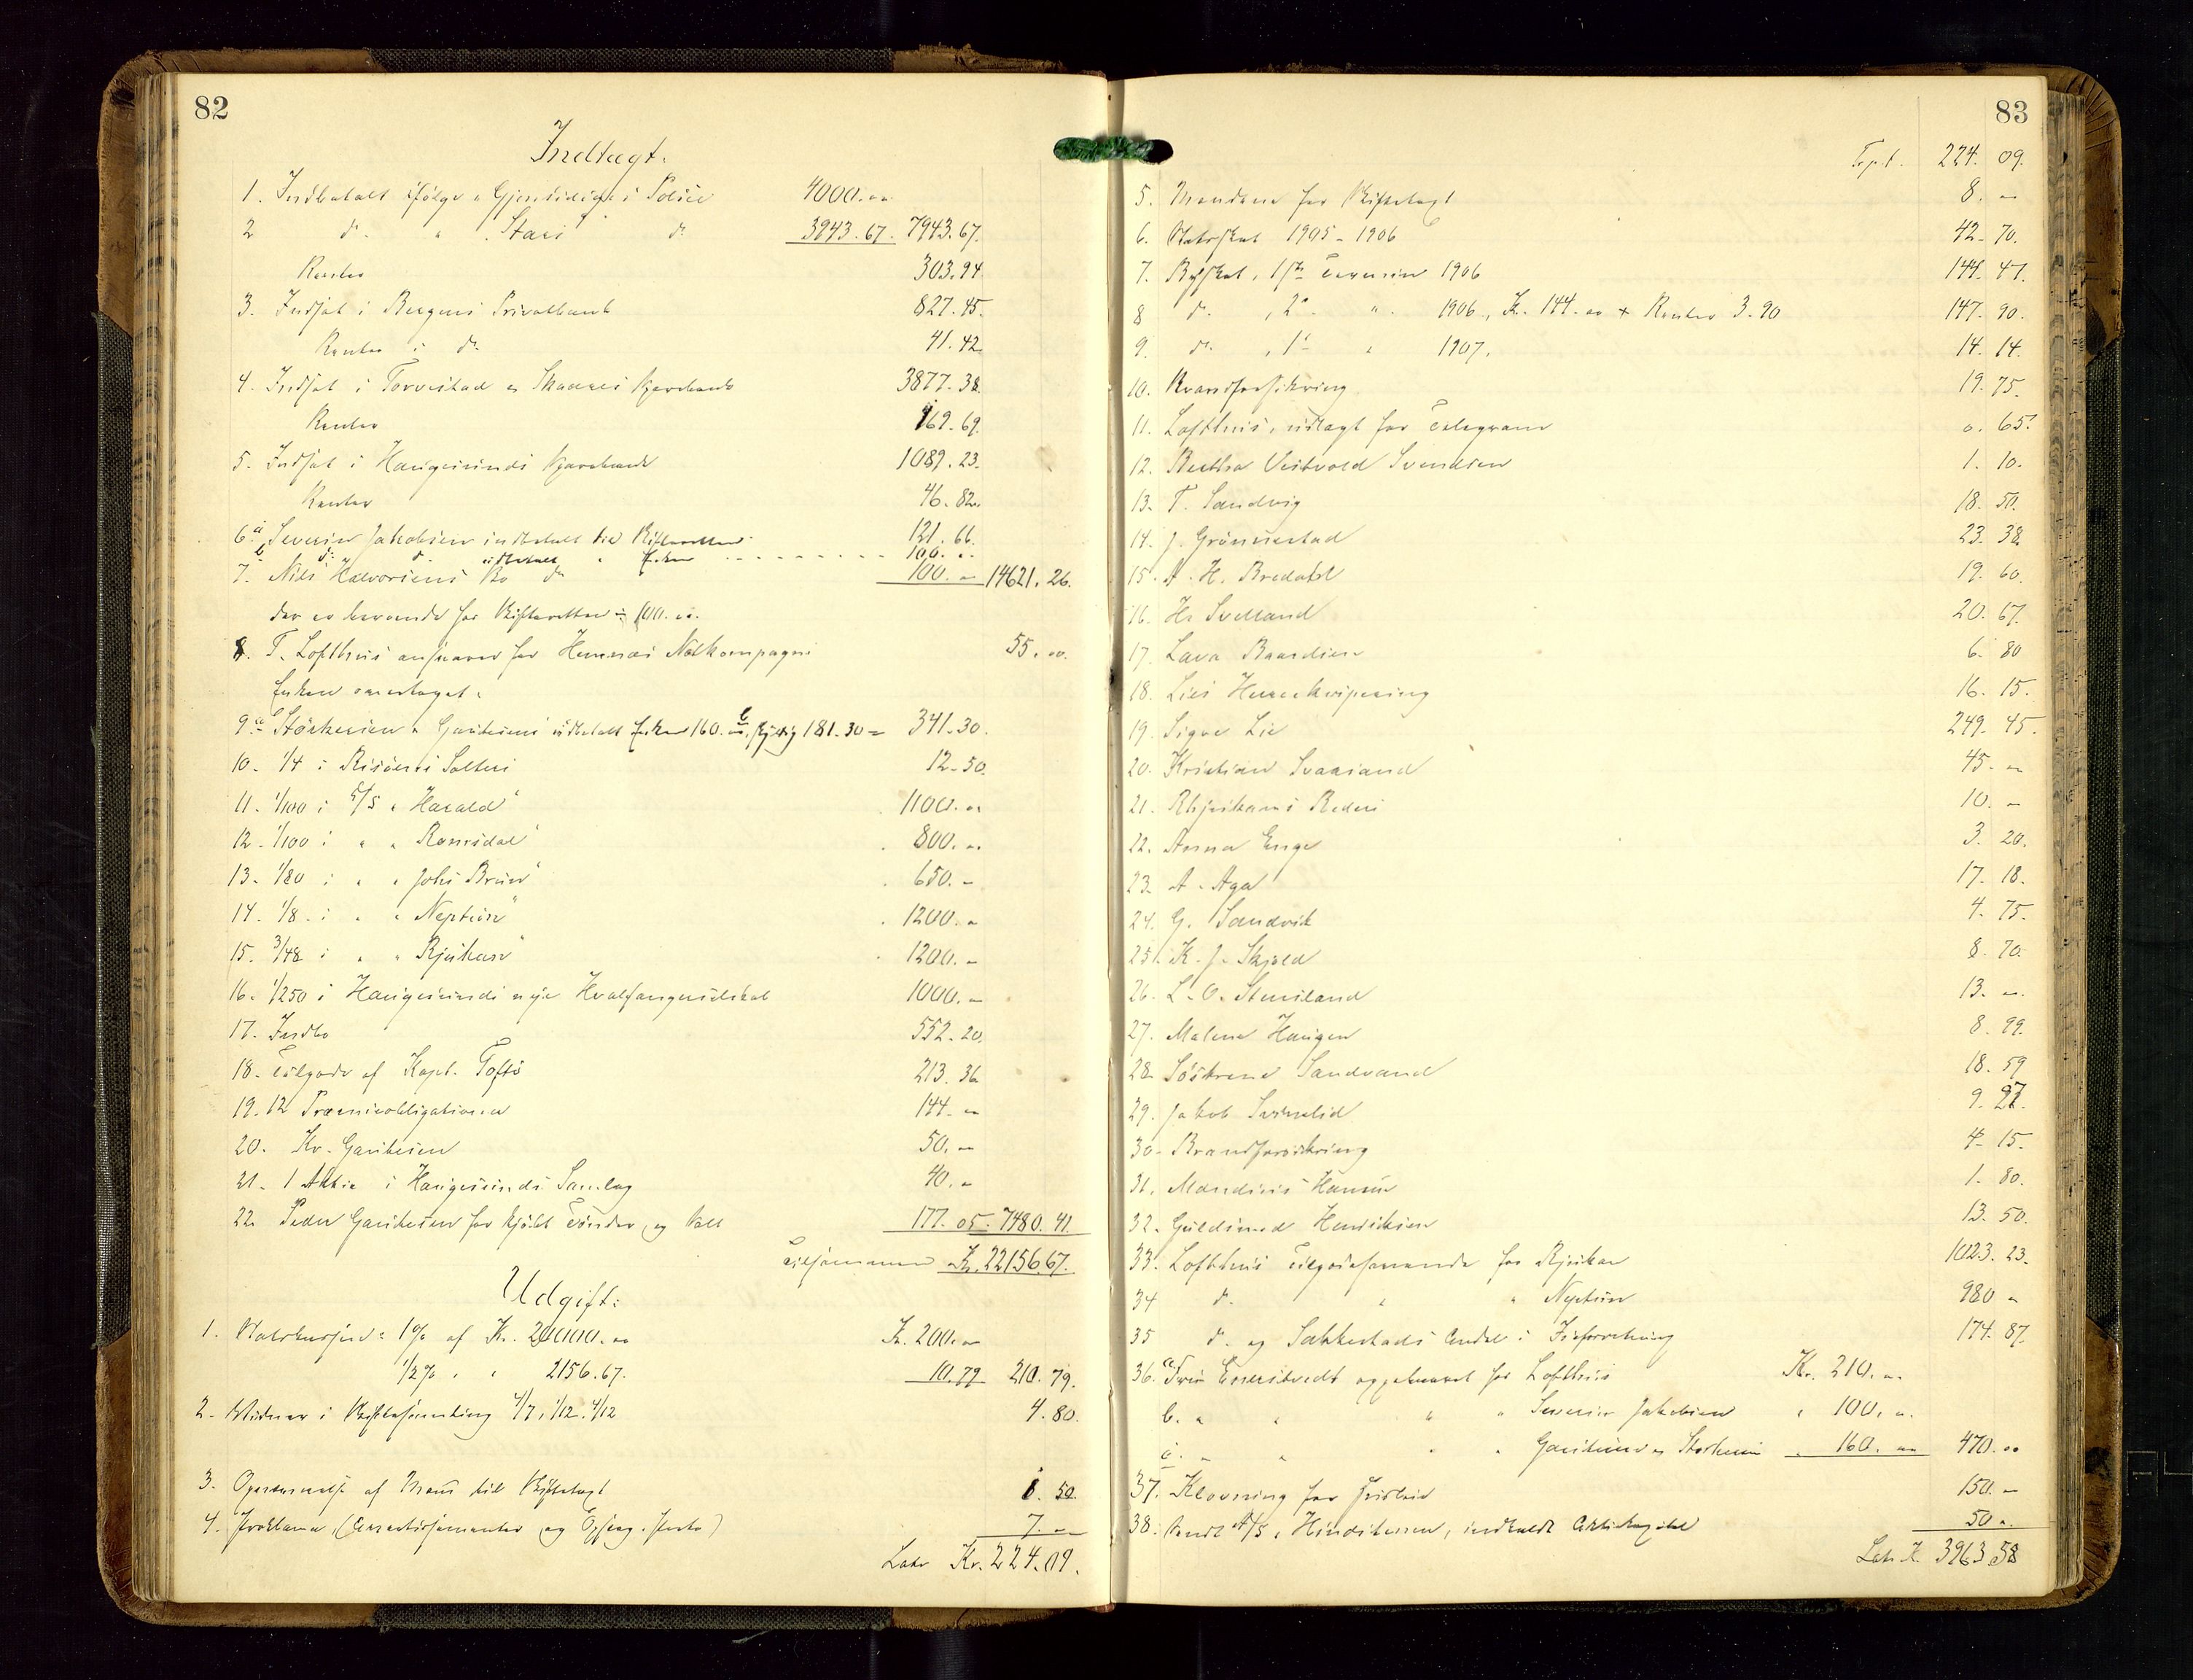 82
Indtægt.
1. Indbetalt ifølge "Gjensidige's Police 4000.00
2 do. " "Stars" do. 3943.67. 7943.67.
Renter 303.94
3. Indsat i Bergens Privatbank 827.45.
Renter i do. 41.42
4. Indsat i Torvestad & Skaares Sparebank 3877.38.
Renter 169.69.
5. Indsat i Haugesunds Sparebank 1089.23.
Renter 46.82.
6.a Severin Jakobsen indbetalt til Skifteretten 121.66.
b do " do udbetalt " Enken 100. "
7. Nils Halvorsens Bo do 100. " 14621.26.
der er hævende for Skifteretten 100.00.
8. T. Lofthus ansvarer for Notkompagni 55.00.
Enken overtaget:
9 a Störkersen & Gautesens udbetalt Enken 160.00, b 181.30 = 341.30.
10. 1/4 i Risøens Salteri 12.50.
11. 1/100 i D/S "Harald" 1100.00
12. 1/100 i " " Romsdal" 800.00
13. 1/80 i " " Johs Brun" 650.-
14. 1/8 i " " Neptun" 1200.-
15. 3/48 i " " Rjukan" 1200.-
16. 1/250 i Haugesunds nye Hvalfangerselskab 1000.-
17. Indbo 552.20.
18. Tilgode af Kapt. Toftø 213.36
19. 12 Præmieobligationer 144.00
20. Kr. Gautesen 50.-
21. 1 Aktie i Haugesunds Samlag 40.-
22. Peder Gautesen for kjøbt Tønder og Salt 177.05. 7480.41.
Tilsammen Kr. 22156.67.
Udgift:
1. Statskassen: 1% af Kr. 20000.00 Kr. 200.00
1/2% " " 2156.67. 10.79 210.79.
2. Vidner i Skiftesamling 4/7, 1/12, 4/12 4.80.
3. Opnævnelse af Mænd til Skiftetagt 1.50.
4. Proklama, (Avertissementer og ) 7.00
Latr. Kr. 224.09.
83
Trpt. 224.09.
5. Mændene for Skiftetagt 8.-
6. Statsskat 1905-1906 42.70.
7. Byskat, 1ste Termin 1906 144.47.
8 do. , 2n " 1906, Kr. 144.00 + Renter 3.90 147.90.
9. do. , 1e " 1907. 14.14.
10. Brandforsikring 19.75.
11. Lofthus, udlagt for Telegram 0.65.
12. Bertha Vestvold Svendsen 1.10.
13. T. Sandvig 18.50.
14. J. Grönnestad 23.38
15. A. H. Bredahl 19.60.
16. H. Svelland 20.67.
17. Lava Baardsen 6.80
18. Lies Herreekvipering 16.15.
19. Sigve Lie 249.45.
20. Kristian Svaasand 45.-
21. Rederi 10.-
22. Anna Enge 3.20.
23. A. Aga 17.18.
24. G. Sandvik 4.75.
25. K. J. Skjold 8.70.
26. L. O. 13.-
27. Malene Haugen 8.99.
28. Söstrene Sandvand 18.59
29. Jakob 9.27.
30. Brandforsikring 4.15.
31. Hansen 1.80.
32. Guldsmed Henriksen 13.50.
33. Lofthus Tilgodehavende for Rjukan 1023.23.
34 do. " " Neptun 980 -
35 do. og Sakkestads Andel i Isforretning 174.87.
36. a Fru oppebaaret for Lofthus Kr. 210.-
b. " " " " Severin Jakobsen " 100.-
c. " " " " Gautesen & Storkersen " 160.00 470.00
37. Klovning for Husleie 150.-
38. A/S "Hindsteinen", indkaldt Aktiekapital 50 -
Latr. K. 3963.58